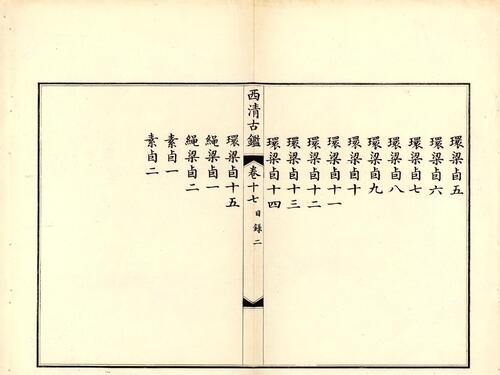 環梁卣五
環梁卣六
環梁卣七
環梁卣八
環梁卣九
環梁卣十
環梁卣十一
環梁卣十二
環梁卣十三
環梁卣十四
西清古鑑
卷十七 目錄 二
環梁卣十五
繩梁卣一
繩梁卣二
素卣一
素卣二